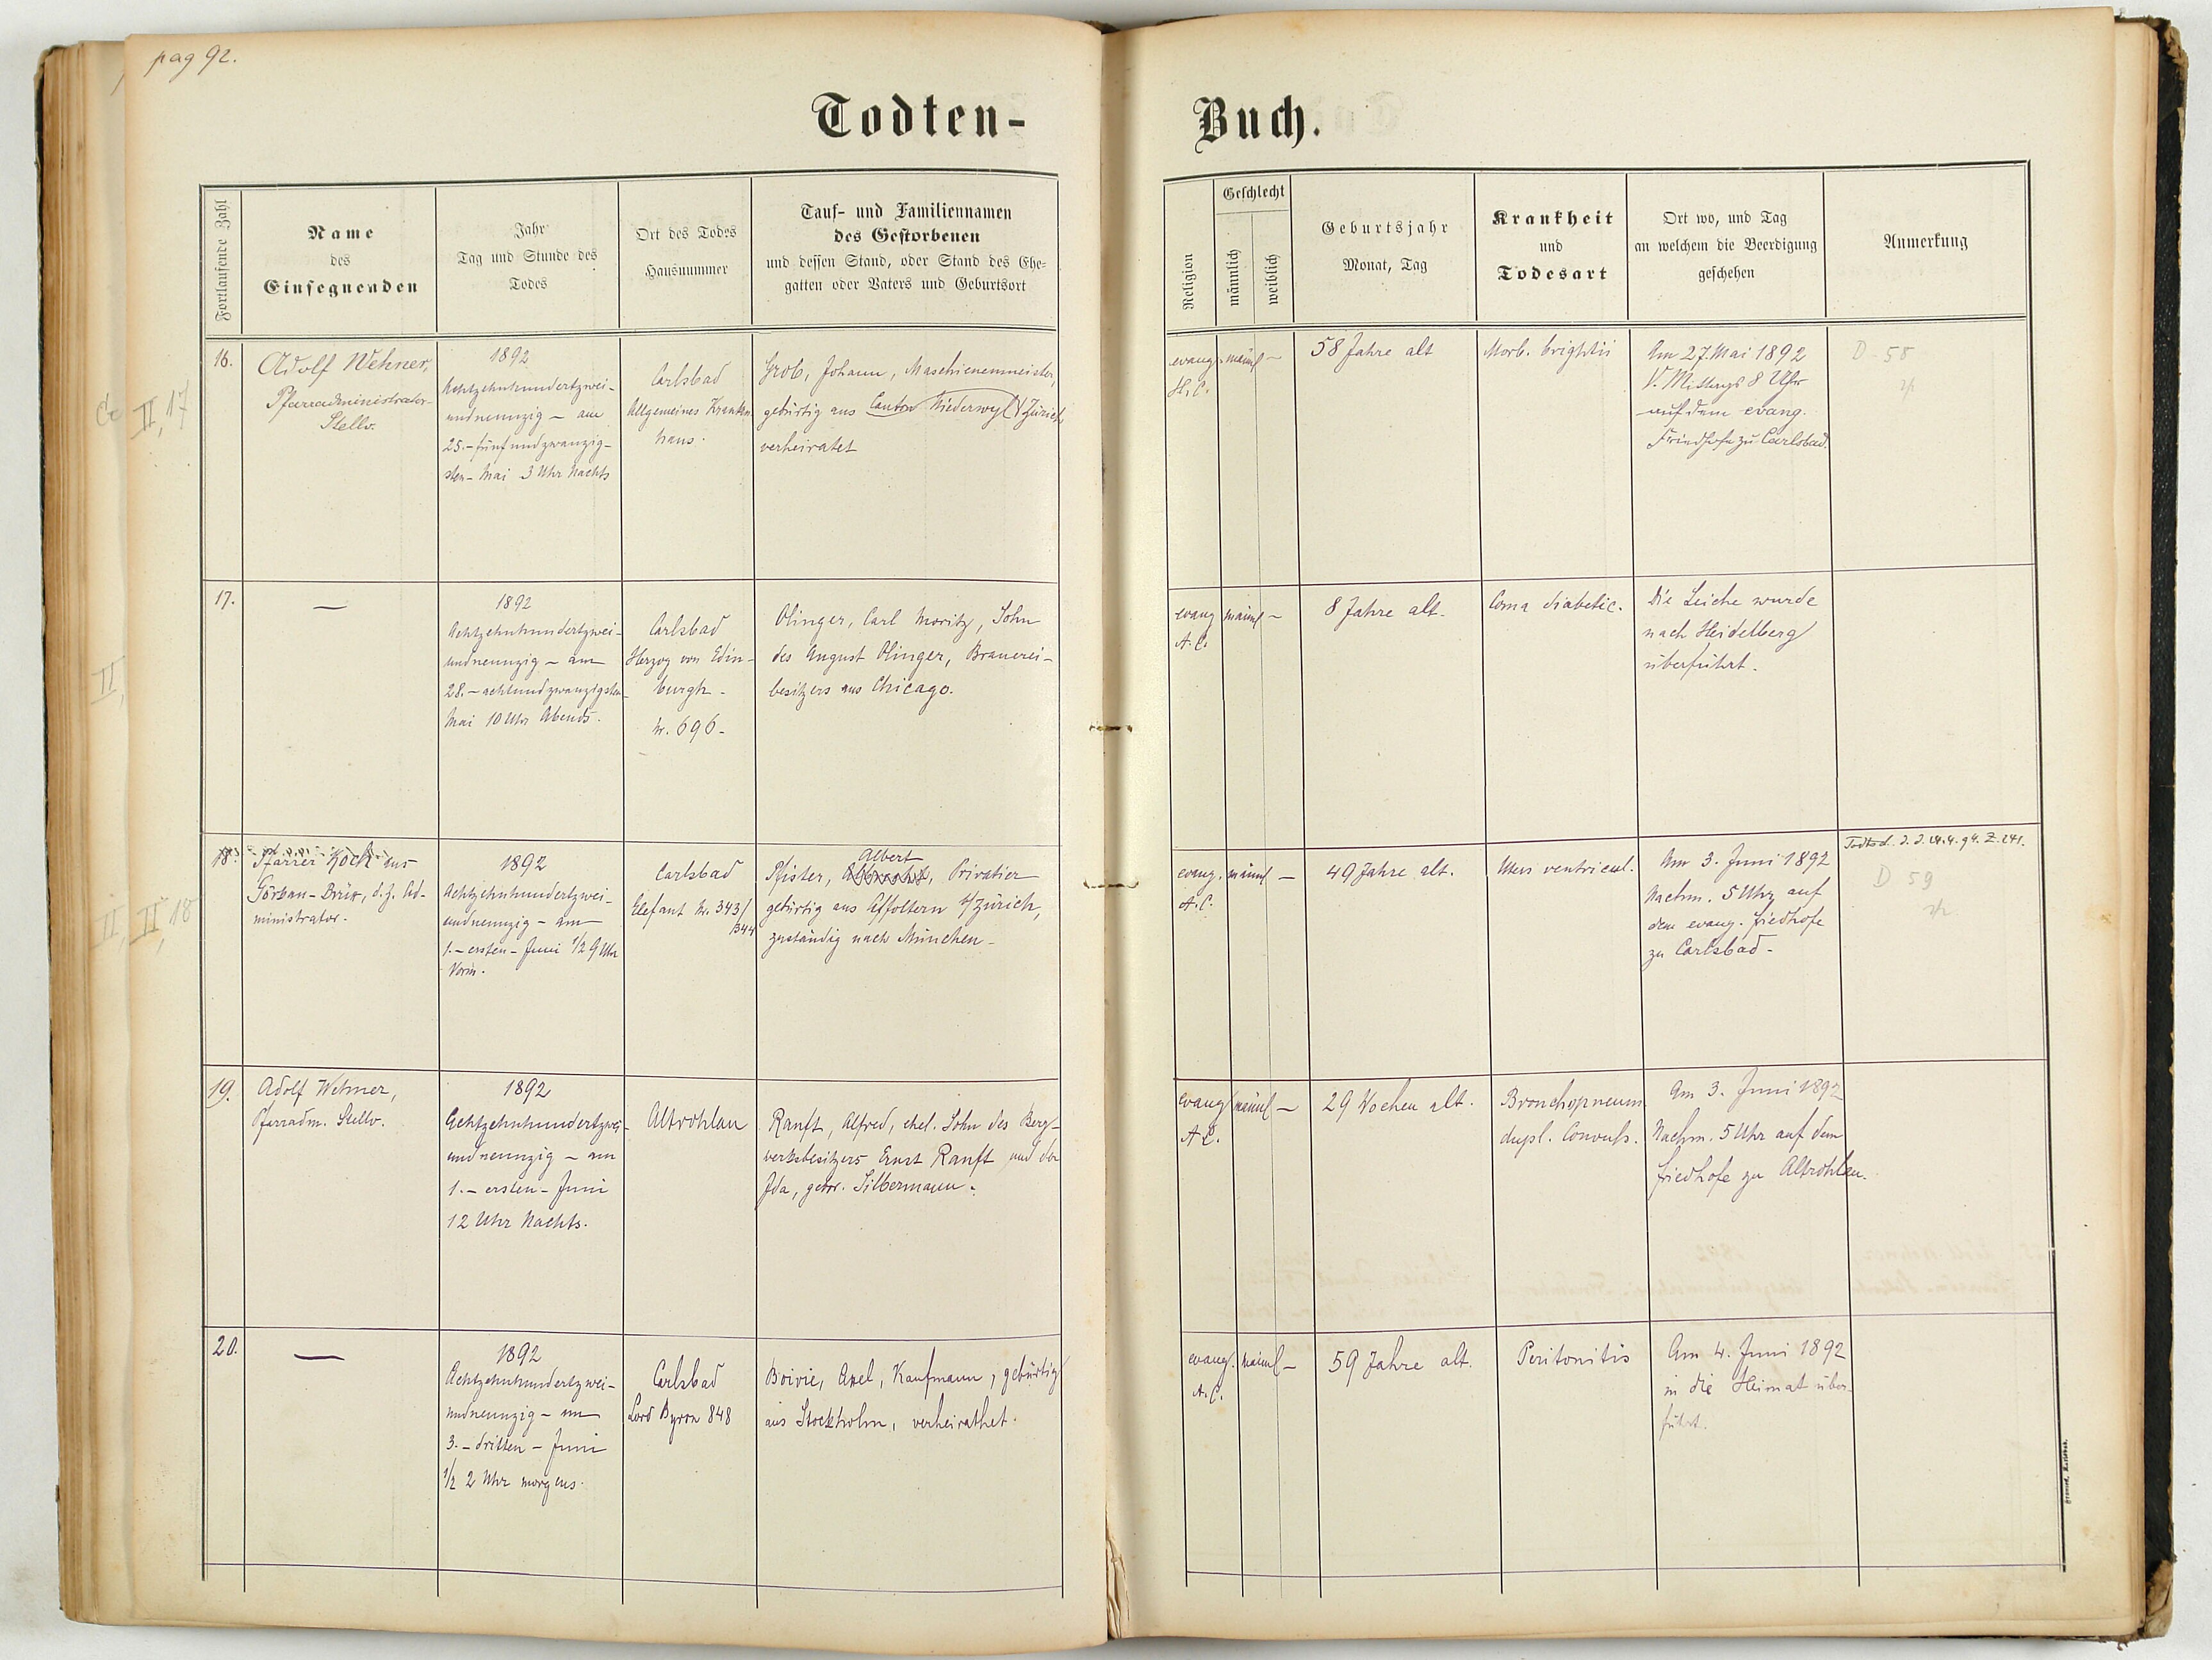 pag 92.
Todten-
Buch.
Fortlaufende Zahl
Name
des
Einsegnenden
Jahr
Tag und Stunde des
Todes
Ort des Todes
Hausnummer
Tauf- und Familiennamen
des Gestorbenen
und dessen Stand, oder Stand des Ehe-
gatten oder Vaters und Geburtsort
Religion
Geschlecht
männlich
weiblich
Geburtsjahr
Monat, Tag
Krankheit
und
Todesart
Ort wo, und Tag
an welchem die Beerdigung
geschehen
Anmerkung
II, 17
16.
Adolf Wehner,
Pfarradministrator
Stellv.
1892
Achtzehnhundertzwei-
undneunzig – am
25. – fünfundzwanzig-
sten – Mai 3 Uhr Nachts
Carlsbad
Allgemeines Kranken
haus.
Grob, Johann, Maschienenmeister,
gebürtig aus Canton Niederwyl Zürich
verheiratet
evang.
H.C.
männl –
58 Jahre alt
Morb. brightii
Am 27. Mai 1892
V. Mittags 8 Uhr
auf dem evang.
Friedhofe zu Carlsbad.
D - 58
II,
17.
—
1892
Achtzehnhundertzwei-
undneunzig – am
28. – achtundzwanzigsten –
Mai 10 Uhr Abends.
Carlsbad
Herzog von Edin-
burgh –
Nr. 696 –
Olinger, Carl Moritz, Sohn
des August Olinger, Brauerei-
besitzers aus Chicago.
evang
A.C.
männl –
8 Jahre alt.
Coma diabetic.
Die Leiche wurde
nach Heidelberg
überführt.
II, II, 18
18.
Pfarrer Koch aus
Görkau-Brüx, d. z. Ad-
ministrator.
1892
Achtzehnhundertzwei-
undneunzig – am
1. – ersten – Juni 1/2 9 Uhr
Vorm.
Carlsbad
Elefant Nr. 343/
344
Albert
Pfister, Privatier
gebürtig aus Affoltern b/Zürich,
zuständig nach München –
evang.
A.C.
männl –
49 Jahre alt.
Ulcus ventricul.
Am 3. Juni 1892
Nachm. 5 Uhr auf
dem evang. Friedhofe
zu Carlsbad –
Z. 241.
D 59
19.
Adolf Wehner,
Pfarradm. Stellv.
1892
Achtzehnhundertzwei-
undneunzig – am
1. – ersten – Juni
12 Uhr Nachts.
Altrohlau
Ranft, Alfred, ehel. Sohn des Berg-
werksbesitzers Ernst Ranft und der
Ida, gebor. Silbermann.
evang
A.C.
männl –
29 Wochen alt.
Bronchopneum.
dupl. Convuls.
Am 3. Juni 1892
Nachm. 5 Uhr auf dem
Friedhofe zu Altrohlau.
20.
—
1892
Achtzehnhundertzwei-
undneunzig – am
3. – dritten – Juni
1/2 2 Uhr morgens.
Carlsbad
Lord Byron 848
Boivie, Axel, Kaufmann, gebürtig
aus Stockholm, verheirathet.
evang.
A.C.
männl –
59 Jahre alt.
Peritonitis
Am 4. Juni 1892
in die Heimat über-
führt.